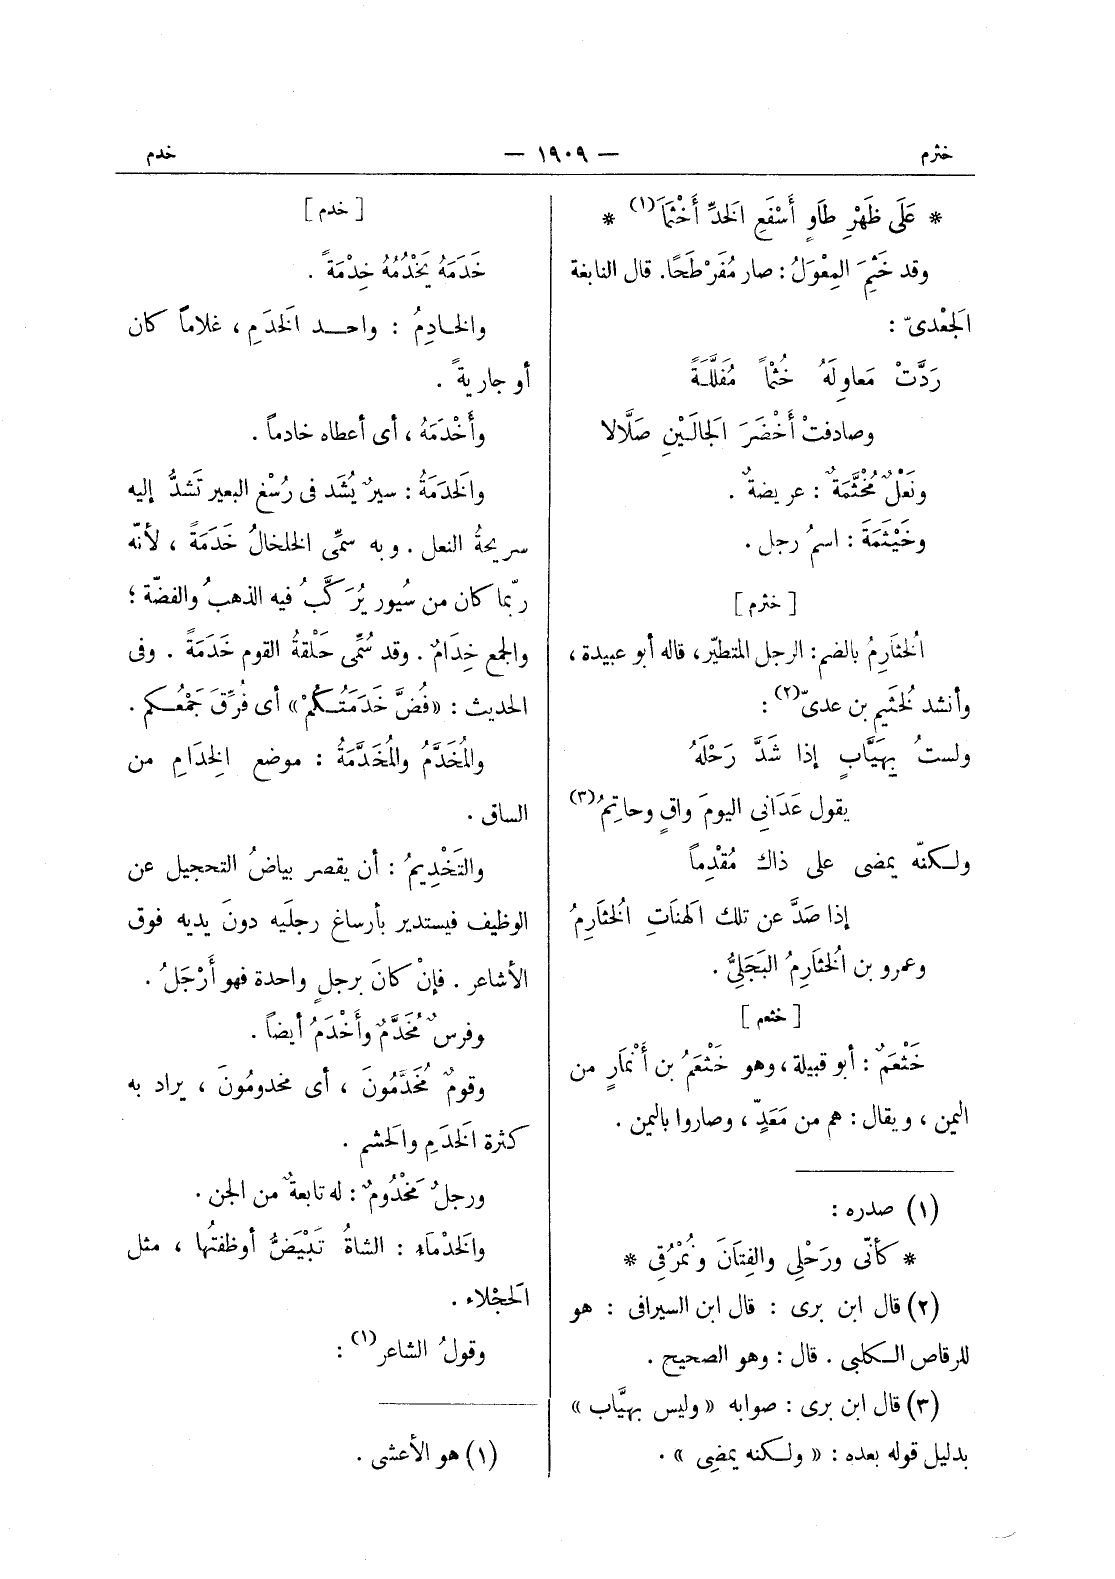 خثرم — ١٩٠٩ — خدم
* عَلَى ظَهْرِ طَاوٍ أَسْفَعِ الخَدِّ أَخْثَمَا (١) *
وقد خَثِمَ المِعْوَلُ : صار مُفَرْطَحًا. قال النابغة
الجَعْدىّ :
رَدَّتْ مَعاوِلَهُ خُثْماً مُفَلَّلَةً
وصادفتْ أَخْضَرَ الجالَيْنِ صَلَّالا
ونَعْلٌ مُخَثَّمَةٌ : عريضةٌ .
وخَيْثَمَةَ : اسمُ رجل .
[ خثرم ]
الخُثَارِمُ بالضم : الرجل المتطيّر، قاله أبو عبيدة ،
وأنشد لخُثَيم بن عدىّ (٢) :
ولستُ بِهَيَّابٍ إذا شَدَّ رَحْلَهُ
يقول عَدَانِى اليومَ واقٍ وحاتِمُ (٣)
ولكنّه يمضى على ذاك مُقْدِماً
إذا صَدَّ عن تلك الهَنَاتِ الخُثَارِمُ
وعمرو بن الخُثَارِمُ البَجَلِىُّ .
[ خثعم ]
خَثْعَمٌ : أبو قبيلة ، وهو خَثْعَمُ بن أَنْمَارٍ من
اليمن ، ويقال : هم من مَعَدٍّ ، وصاروا باليمن .
(١) صدره :
* كأنّى ورَحْلِى والفِتَانَ ونُمْرُقِى *
(٢) قال ابن برى : قال ابن السيرافى : هو
للرقاص الكلبى . قال : وهو الصحيح .
(٣) قال ابن برى : صوابه « وليس بهيَّاب »
بدليل قوله بعده : « ولكنه يمضِى » .
[ خدم ]
خَدَمَهُ يَخْدُمُهُ خِدْمَةً .
والخادِمُ : واحد الخَدَمِ ، غلاماً كان
أو جاريةً .
وأَخْدَمَهُ ، أى أعطاه خادماً .
والخَدَمَةُ : سيرٌ يُشَد فى رُسْغ البعير تَشدُّ إليه
سريحةُ النعل . وبه سمِّى الخلخالُ خَدَمَةً ، لأنّه
ربّما كان من سُيور يُرَكَّبُ فيه الذهبُ والفضّة ؛
والجمع خِدَامٌ . وقد سُمِّى حَلْقةُ القوم خَدَمَةً . وفى
الحديث : «فُضَّ خَدَمَتُكُمْ» أى فُرِّقَ جَمْعُكم .
والمُخَدَّمُ والمُخَدَّمَةُ : موضع الخِدَامِ من
الساق .
والتَخْدِيمُ : أن يقصر بياضُ التحجيل عن
الوظيف فيستدير بأرساغ رجلَيه دونَ يديه فوق
الأشاعر . فإنْ كانَ برجلٍ واحدة فهو أَرْجَلُ .
وفرسٌ مُخَدَّمٌ وأَخْدَمُ أيضاً .
وقومٌ مُخَدَّمُونَ ، أى مخدومُونَ ، يراد به
كثرة الخَدَمِ والحَشم .
ورجلٌ مَخْدُومٌ : له تابعةٌ من الجن .
والخَدْمَاءِ : الشاةُ تَبْيَضُّ أوظفتُها ، مثل
الحَجْلاء .
وقولُ الشاعر (١) :
(١) هو الأعشى .